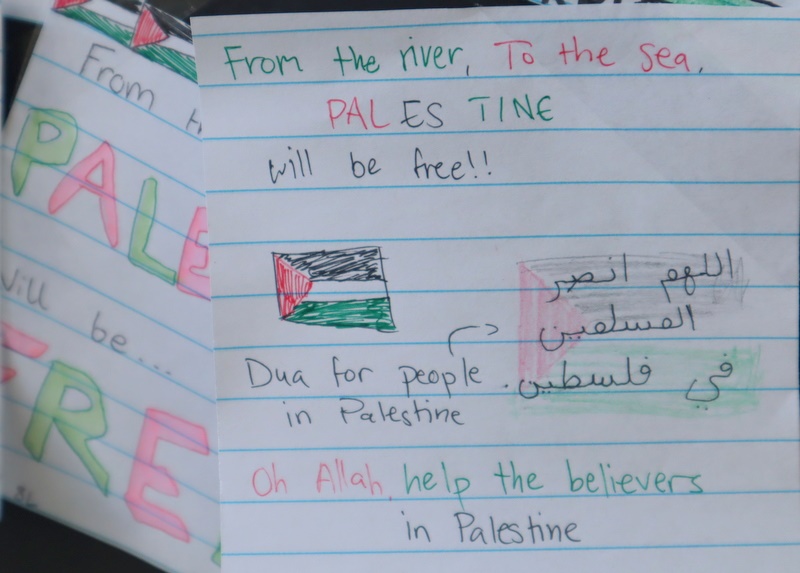 From the river, To the sea,
PALESTINE
will be free!!
اللهم انصر
المسلمين
في فلسطين.
Dua for people
in Palestine
Oh Allah, help the believers
in Palestine
From
PALE
will be...
FREE